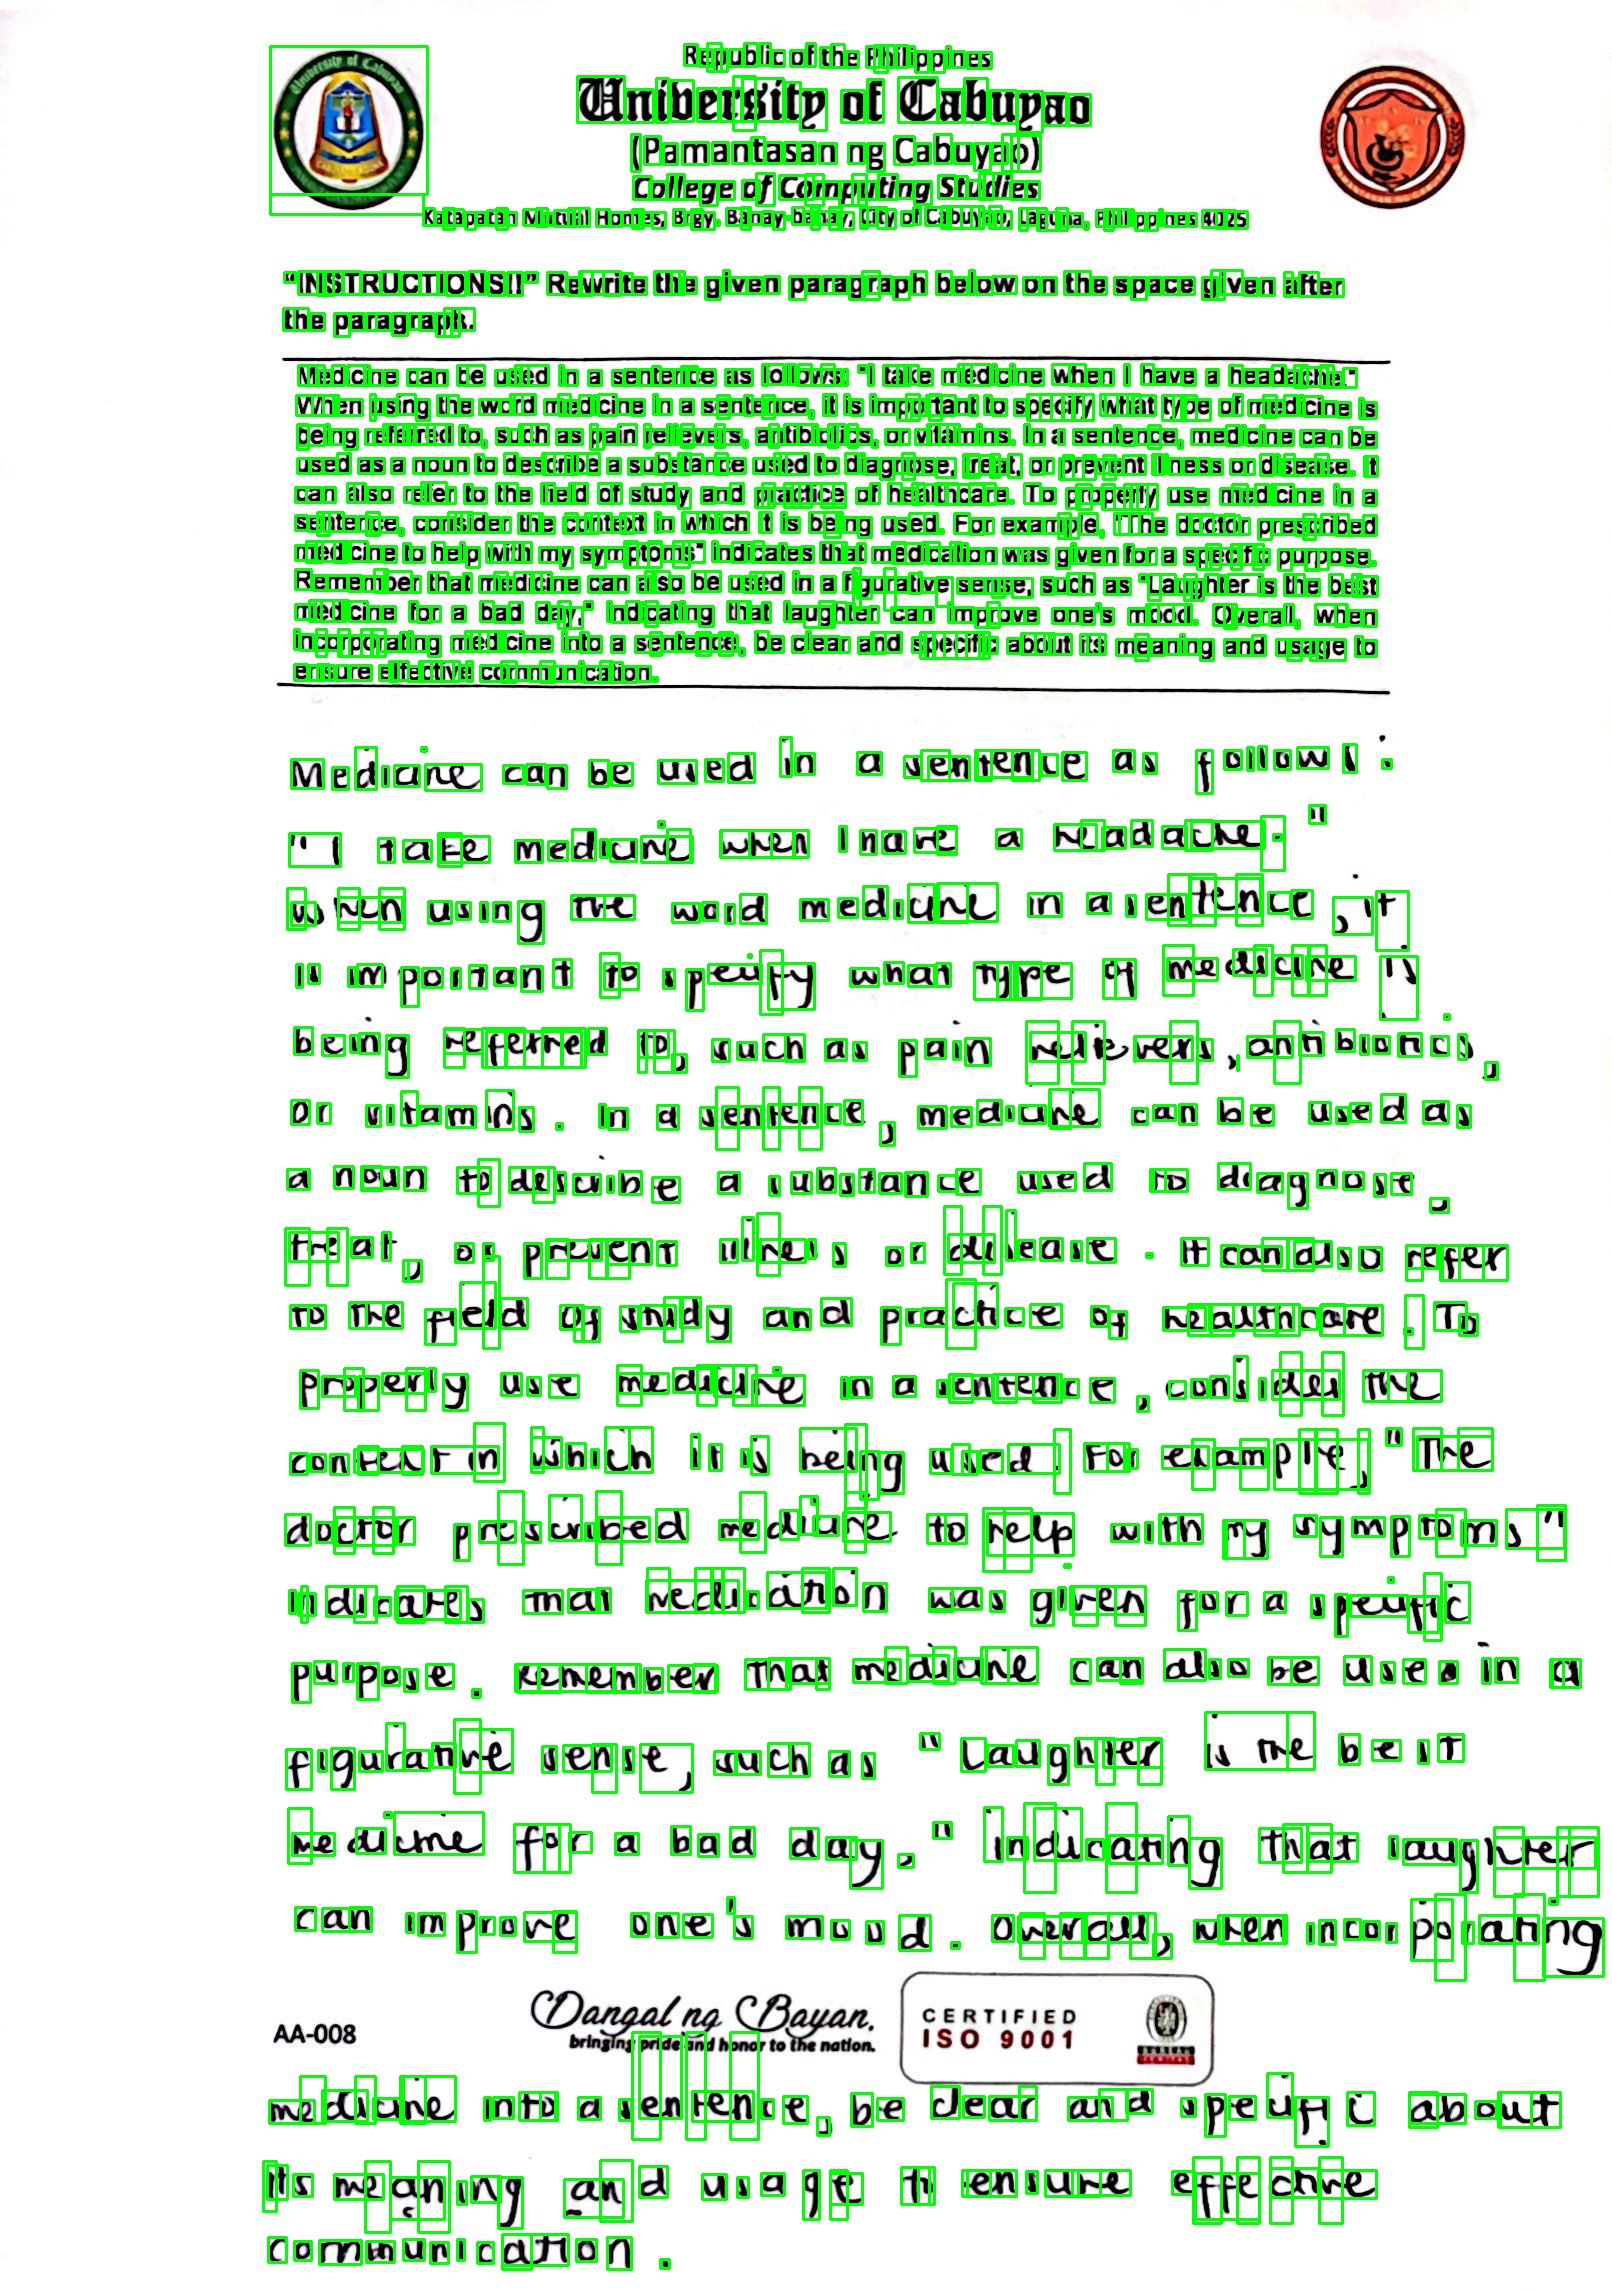 University of Cabuyao
Republic of the Philippines
University of Cabuyao
(Pamantasan ng Cabuyao)
College of Computing Studies
Katapatan Mutual Homes, Brgy. Banay-banay, City of Cabuyao, Laguna, Philippines 4025
“INSTRUCTIONS!!” Rewrite the given paragraph below on the space given after
the paragraph.
Medicine can be used in a sentence as follows: "I take medicine when I have a headache."
When using the word medicine in a sentence, it is important to specify what type of medicine is
being referred to, such as pain relievers, antibiotics, or vitamins. In a sentence, medicine can be
used as a noun to describe a substance used to diagnose, treat, or prevent illness or disease. It
can also refer to the field of study and practice of healthcare. To properly use medicine in a
sentence, consider the context in which it is being used. For example, "The doctor prescribed
medicine to help with my symptoms" indicates that medication was given for a specific purpose.
Remember that medicine can also be used in a figurative sense, such as "Laughter is the best
medicine for a bad day," indicating that laughter can improve one's mood. Overall, when
incorporating medicine into a sentence, be clear and specific about its meaning and usage to
ensure effective communication.
Medicine can be used in a sentence as follows :
" I take medicine when I have a headache. "
When using the word medicine in a sentence , it
is important to specify what type of medicine is
being referred to, such as pain relievers , antibiotics,
or vitamins . In a sentence , medicine can be used as
a noun to describe a substance used to diagnose ,
treat , or prevent illness or disease . It can also refer
to the field of study and practice of healthcare . To
properly use medicine in a sentence , consider the
context in which it is being used . For example, " The
doctor prescribed medicine to help with my symptoms "
indicates that medication was given for a specific
purpose . Remember that medicine can also be used in a
figurative sense, such as " Laughter is the best
medicine for a bad day , " indicating that laughter
can improve one's mood . Overall, when incorporating
AA-008
Dangal ng Bayan.
bringing pride and honor to the nation.
CERTIFIED
ISO 9001
BUREAU
VERITAS
medicine into a sentence , be clear and specific about
its meaning and usage to ensure effective
communication .